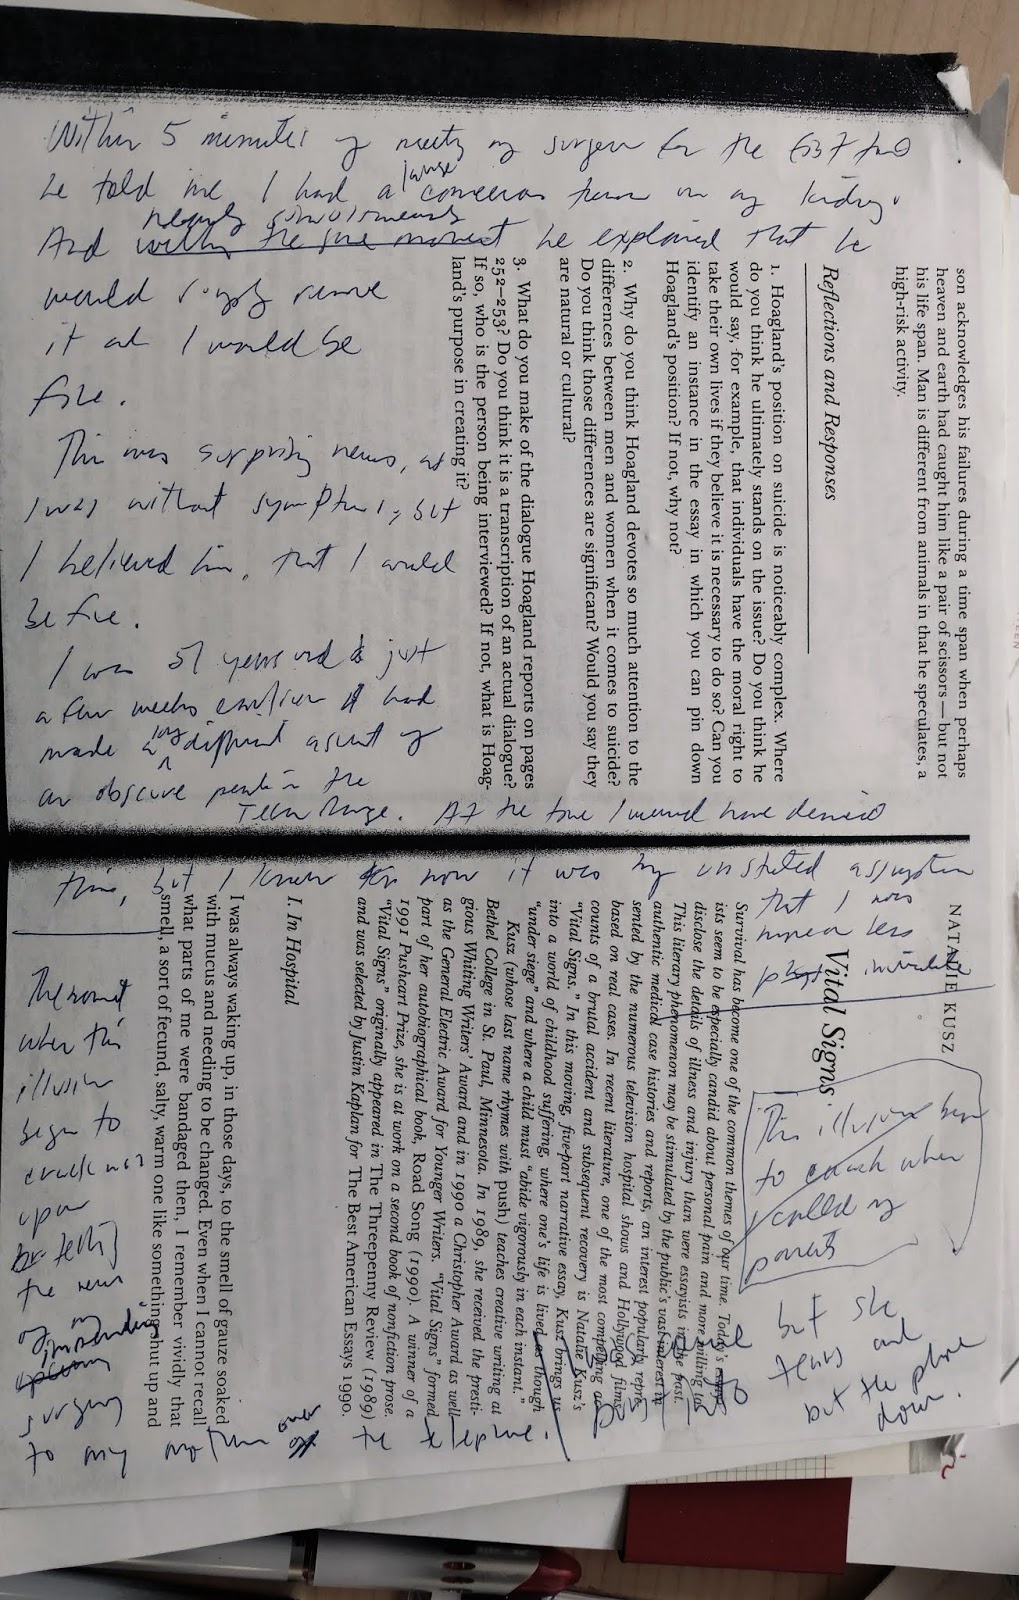 Within 5 minutes of meeting my surgeon for the first time
he told me I had a large cancerous tumor on my kidney.
And nearly simultaneously he explained that he
would simply remove
it and I would be
fine.
This was surprising news, as
I was without symptoms, but
I believed him, that I would
be fine.
I was 51 years old & just
a few weeks earlier I had
made a difficult ascent of
an obscure peak in the
Teton Range. At the time I would have denied
this, but I know now it was my unstated assumption
that I was
more or less
The moment
when this
illusion
began to
crack was
upon
telling
the news
of my
impending
surgery
to my mother over the telephone.
This illusion began
to crack when
I called my
parents
but she
tears and
put the phone
down.
son acknowledges his failures during a time span when perhaps
heaven and earth had caught him like a pair of scissors—but not
his life span. Man is different from animals in that he speculates, a
high-risk activity.
Reflections and Responses
1. Hoagland's position on suicide is noticeably complex. Where
do you think he ultimately stands on the issue? Do you think he
would say, for example, that individuals have the moral right to
take their own lives if they believe it is necessary to do so? Can you
identify an instance in the essay in which you can pin down
Hoagland's position? If not, why not?
2. Why do you think Hoagland devotes so much attention to the
differences between men and women when it comes to suicide?
Do you think those differences are significant? Would you say they
are natural or cultural?
3. What do you make of the dialogue Hoagland reports on pages
252–253? Do you think it is a transcription of an actual dialogue?
If so, who is the person being interviewed? If not, what is Hoag-
land's purpose in creating it?
NATALIE KUSZ
Vital Signs
Survival has become one of the common themes of our time. Today's
ists seem to be especially candid about personal pain and more willing to
disclose the details of illness and injury than were essayists in the past.
This literary phenomenon may be stimulated by the public's vast interest in
authentic medical case histories and reports, an interest popularly repre-
sented by the numerous television hospital shows and Hollywood films
based on real cases. In recent literature, one of the most compelling ac-
counts of a brutal accident and subsequent recovery is Natalie Kusz's
"Vital Signs." In this moving, five-part narrative essay, Kusz brings us
into a world of childhood suffering, where one's life is lived as though
"under siege" and where a child must "abide vigorously in each instant."
Kusz (whose last name rhymes with push) teaches creative writing at
Bethel College in St. Paul, Minnesota. In 1989, she received the presti-
gious Whiting Writers' Award and in 1990 a Christopher Award as well
as the General Electric Award for Younger Writers. "Vital Signs" formed
part of her autobiographical book, Road Song (1990). A winner of a
1991 Pushcart Prize, she is at work on a second book of nonfiction prose.
"Vital Signs" originally appeared in The Threepenny Review (1989)
and was selected by Justin Kaplan for The Best American Essays 1990.
I. In Hospital
I was always waking up, in those days, to the smell of gauze soaked
with mucus and needing to be changed. Even when I cannot recall
what parts of me were bandaged then, I remember vividly that
smell, a sort of fecund, salty, warm one like something shut up and